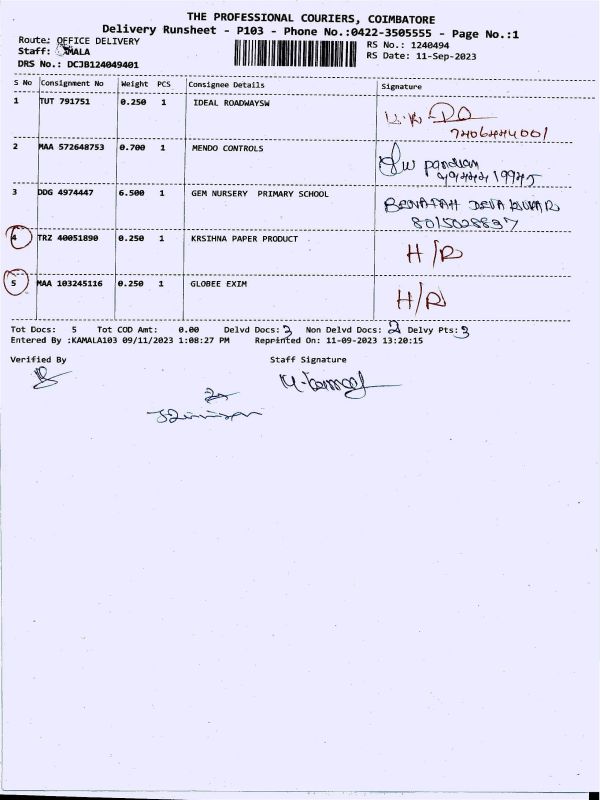 THE PROFESSIONAL COURIERS, COIMBATORE
Delivery Runsheet - P103 - Phone No.:0422-3505555 - Page No.:1
Route: OFFICE DELIVERY RS No.: 1240494
Staff: KAMALA RS Date: 11-Sep-2023
DRS No.: DCJB124049401
S No Consignment No Weight PCS Consignee Details Signature
1 TUT 791751 0.250 1 IDEAL ROADWAYSW
2 MAA 572648753 0.700 1 MENDO CONTROLS
pandian
3 DDG 4974447 6.500 1 GEM NURSERY PRIMARY SCHOOL
8015028837
4 TRZ 40051890 0.250 1 KRSIHNA PAPER PRODUCT H/R
5 MAA 103245116 0.250 1 GLOBEE EXIM H/R
Tot Docs: 5 Tot COD Amt: 0.00 Delvd Docs: 3 Non Delvd Docs: 2 Delvy Pts: 3
Entered By :KAMALA103 09/11/2023 1:08:27 PM Reprinted On: 11-09-2023 13:20:15
Verified By Staff Signature